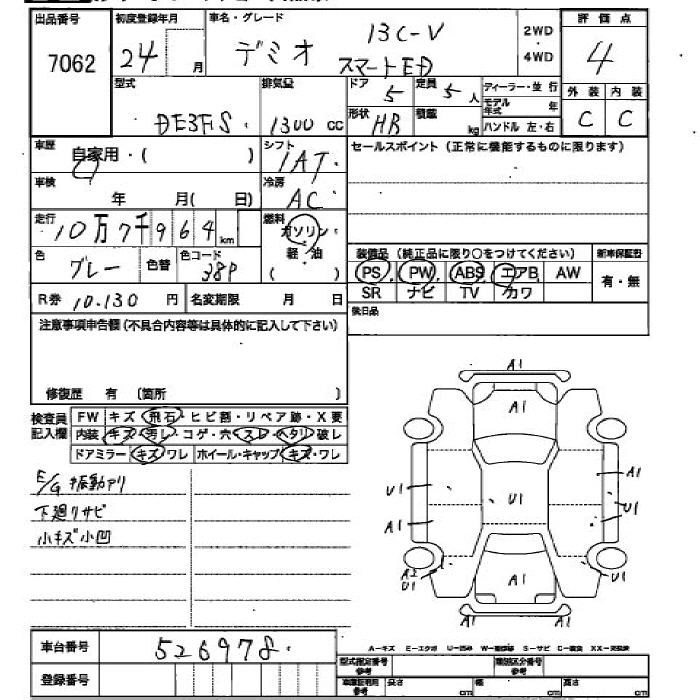 出品番号 初度登録年月 車名・グレード 評価点
7062 24 月 デミオ 13C-V スマートED 2WD 4WD 4
型式 排気量 ドア 定員 ディーラー・並行 外装 内装
DE3FS 1300 cc 5 5人 モデル年式 年 C C
形状 HB 積載 kg ハンドル 左・右
車歴 自家用・( ) シフト 1AT セールスポイント(正常に機能するものに限ります)
車検 年 月( 日) 冷房 AC
走行 10万7千964km 燃料 ガソリン・軽・油 ( )
色 グレー 色替 色コード 38P 装備品(純正品に限り○をつけてください) 新車保証書
PS PW ABS エアB AW 有・無
R券 10.130 円 名変期限 月 日 SR ナビ TV カワ
注意事項申告欄(不具合内容等は具体的に記入して下さい) 後日品
修復歴 有 〔箇所 〕
検査員記入欄 FW キズ・飛石・ヒビ割・リペア跡・X要
内装 キズ・汚レ・コゲ・穴・スレ・ヘタリ・破レ
ドアミラー キズ・ワレ ホイール・キャップ キズ・ワレ
E/G振動アリ
下廻リサビ
小キズ小凹
A1
A1
A1
U1 U1 U1
A1
A2
U1 A1 U1
A1
車台番号 526978
登録番号
A−キズ E−エクボ U−凹み S−サビ
型式指定番号 参考 類別区分番号 参考
車庫証明用 参考 長さ cm 幅 cm 高さ cm